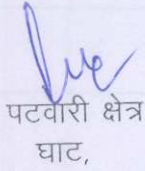 पटवारी क्षेत्र
घाट,